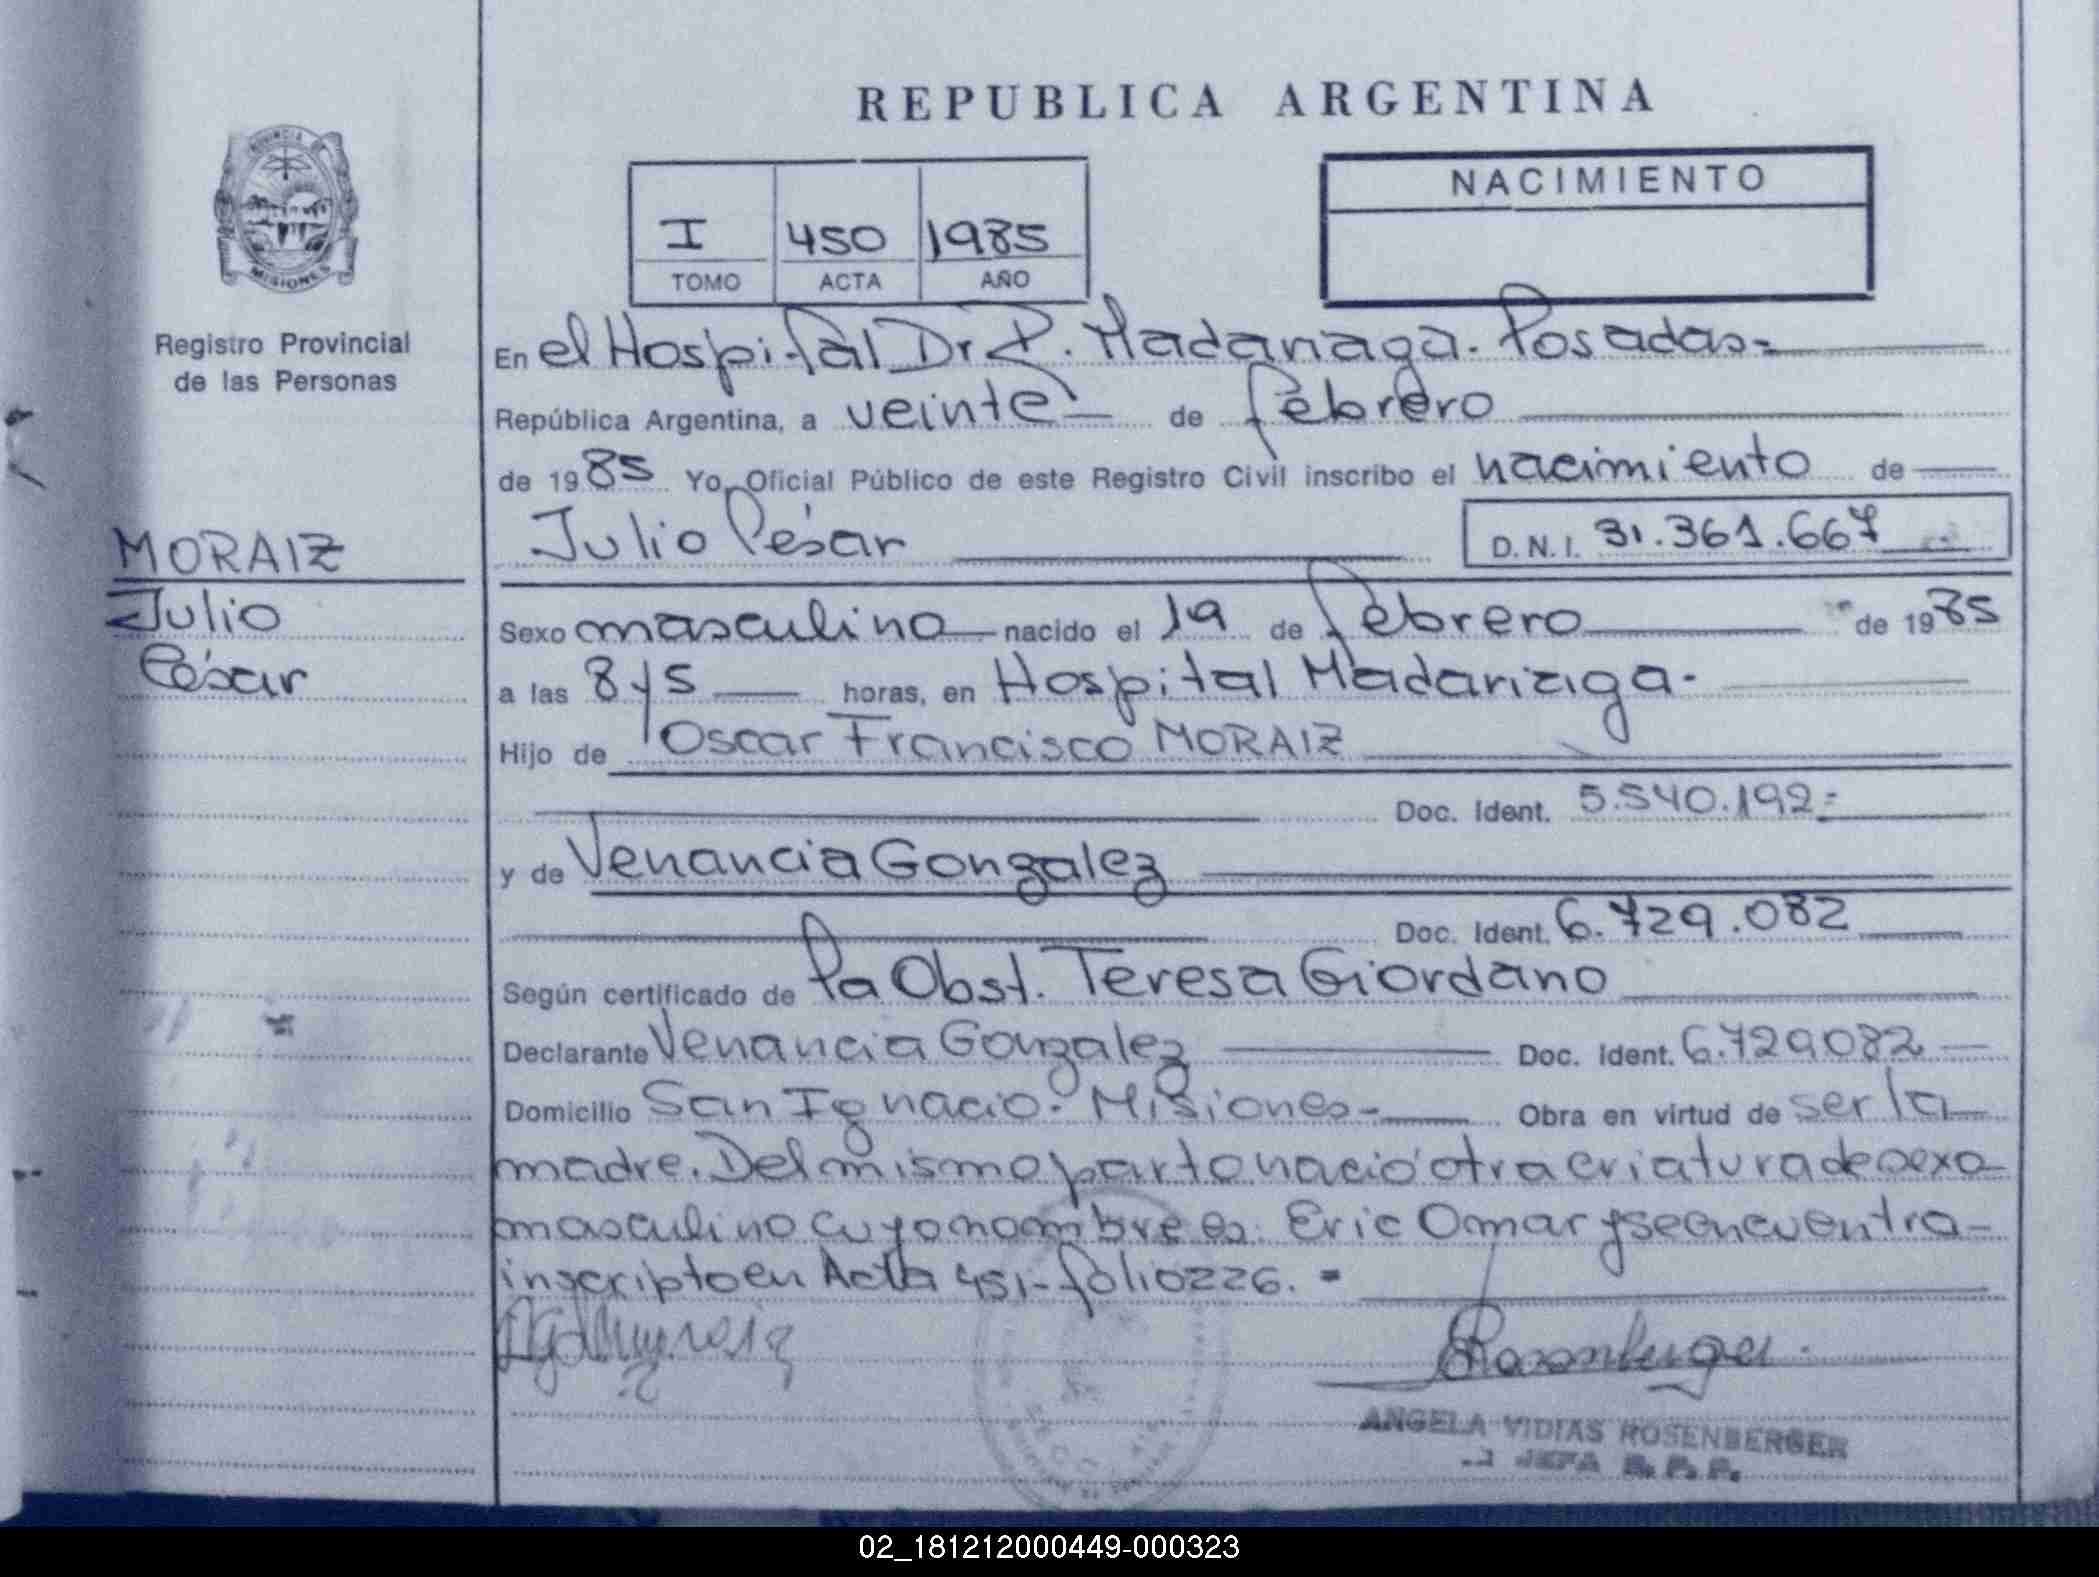 REPUBLICA ARGENTINA
PROVINCIA
MISIONES
Registro Provincial
de las Personas
I 450 1985
TOMO ACTA AÑO
NACIMIENTO
En el Hospital Dr R. Madariaga. Posadas=
República Argentina, a veinte de febrero
de 1985 Yo, Oficial Público de este Registro Civil inscribo el nacimiento de
MORAIZ
Julio César
D.N.I. 31.361.667
Julio
César
Sexo masculino nacido el 19 de febrero de 1985
a las 8 y 5 horas, en Hospital Madariaga.
Hijo de Oscar Francisco MORAIZ
Doc. Ident. 5.540.192=
y de Venancia Gonzalez
Doc. Ident. 6.729.082
Según certificado de la Obst. Teresa Giordano
Declarante Venancia Gonzalez Doc. Ident. 6.729082
Domicilio San Ignacio. Misiones- Obra en virtud de ser la
madre. Del mismo parto nació otra criatura de sexo
masculino cuyo nombre es: Eric Omar y se encuentra
inscripto en Acta 451-folio 226. =
Rosenberger.
ANGELA VIDIAS ROSENBERGER
JEFA R. P. P.
02_181212000449-000323